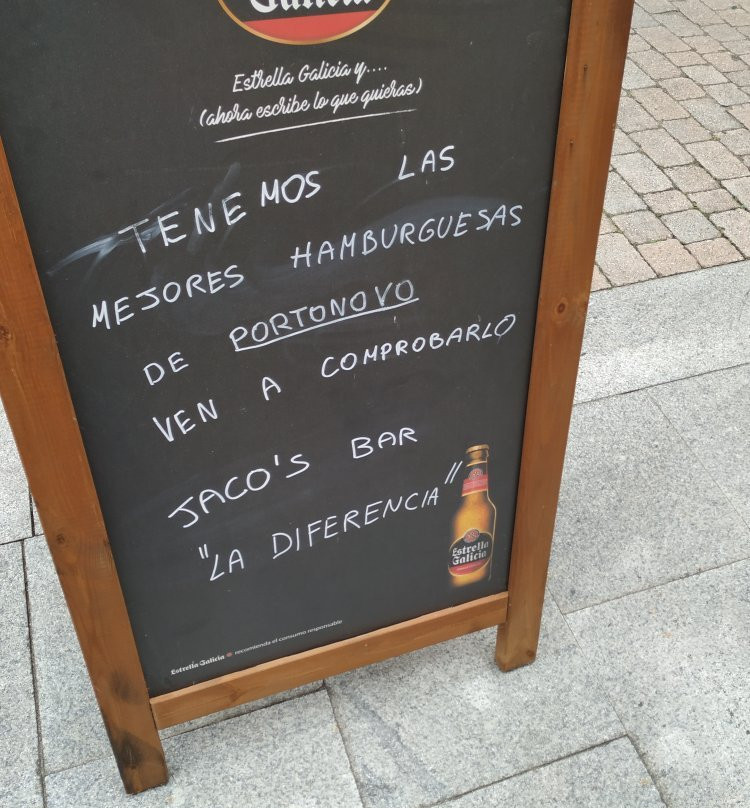 Galicia
Estrella Galicia y....
(ahora escribe lo que quieras)
TENEMOS LAS
MEJORES HAMBURGUESAS
DE PORTONOVO
VEN A COMPROBARLO
JACO'S BAR
"LA DIFERENCIA"
Estrella
Galicia
Estrella Galicia recomienda el consumo responsable